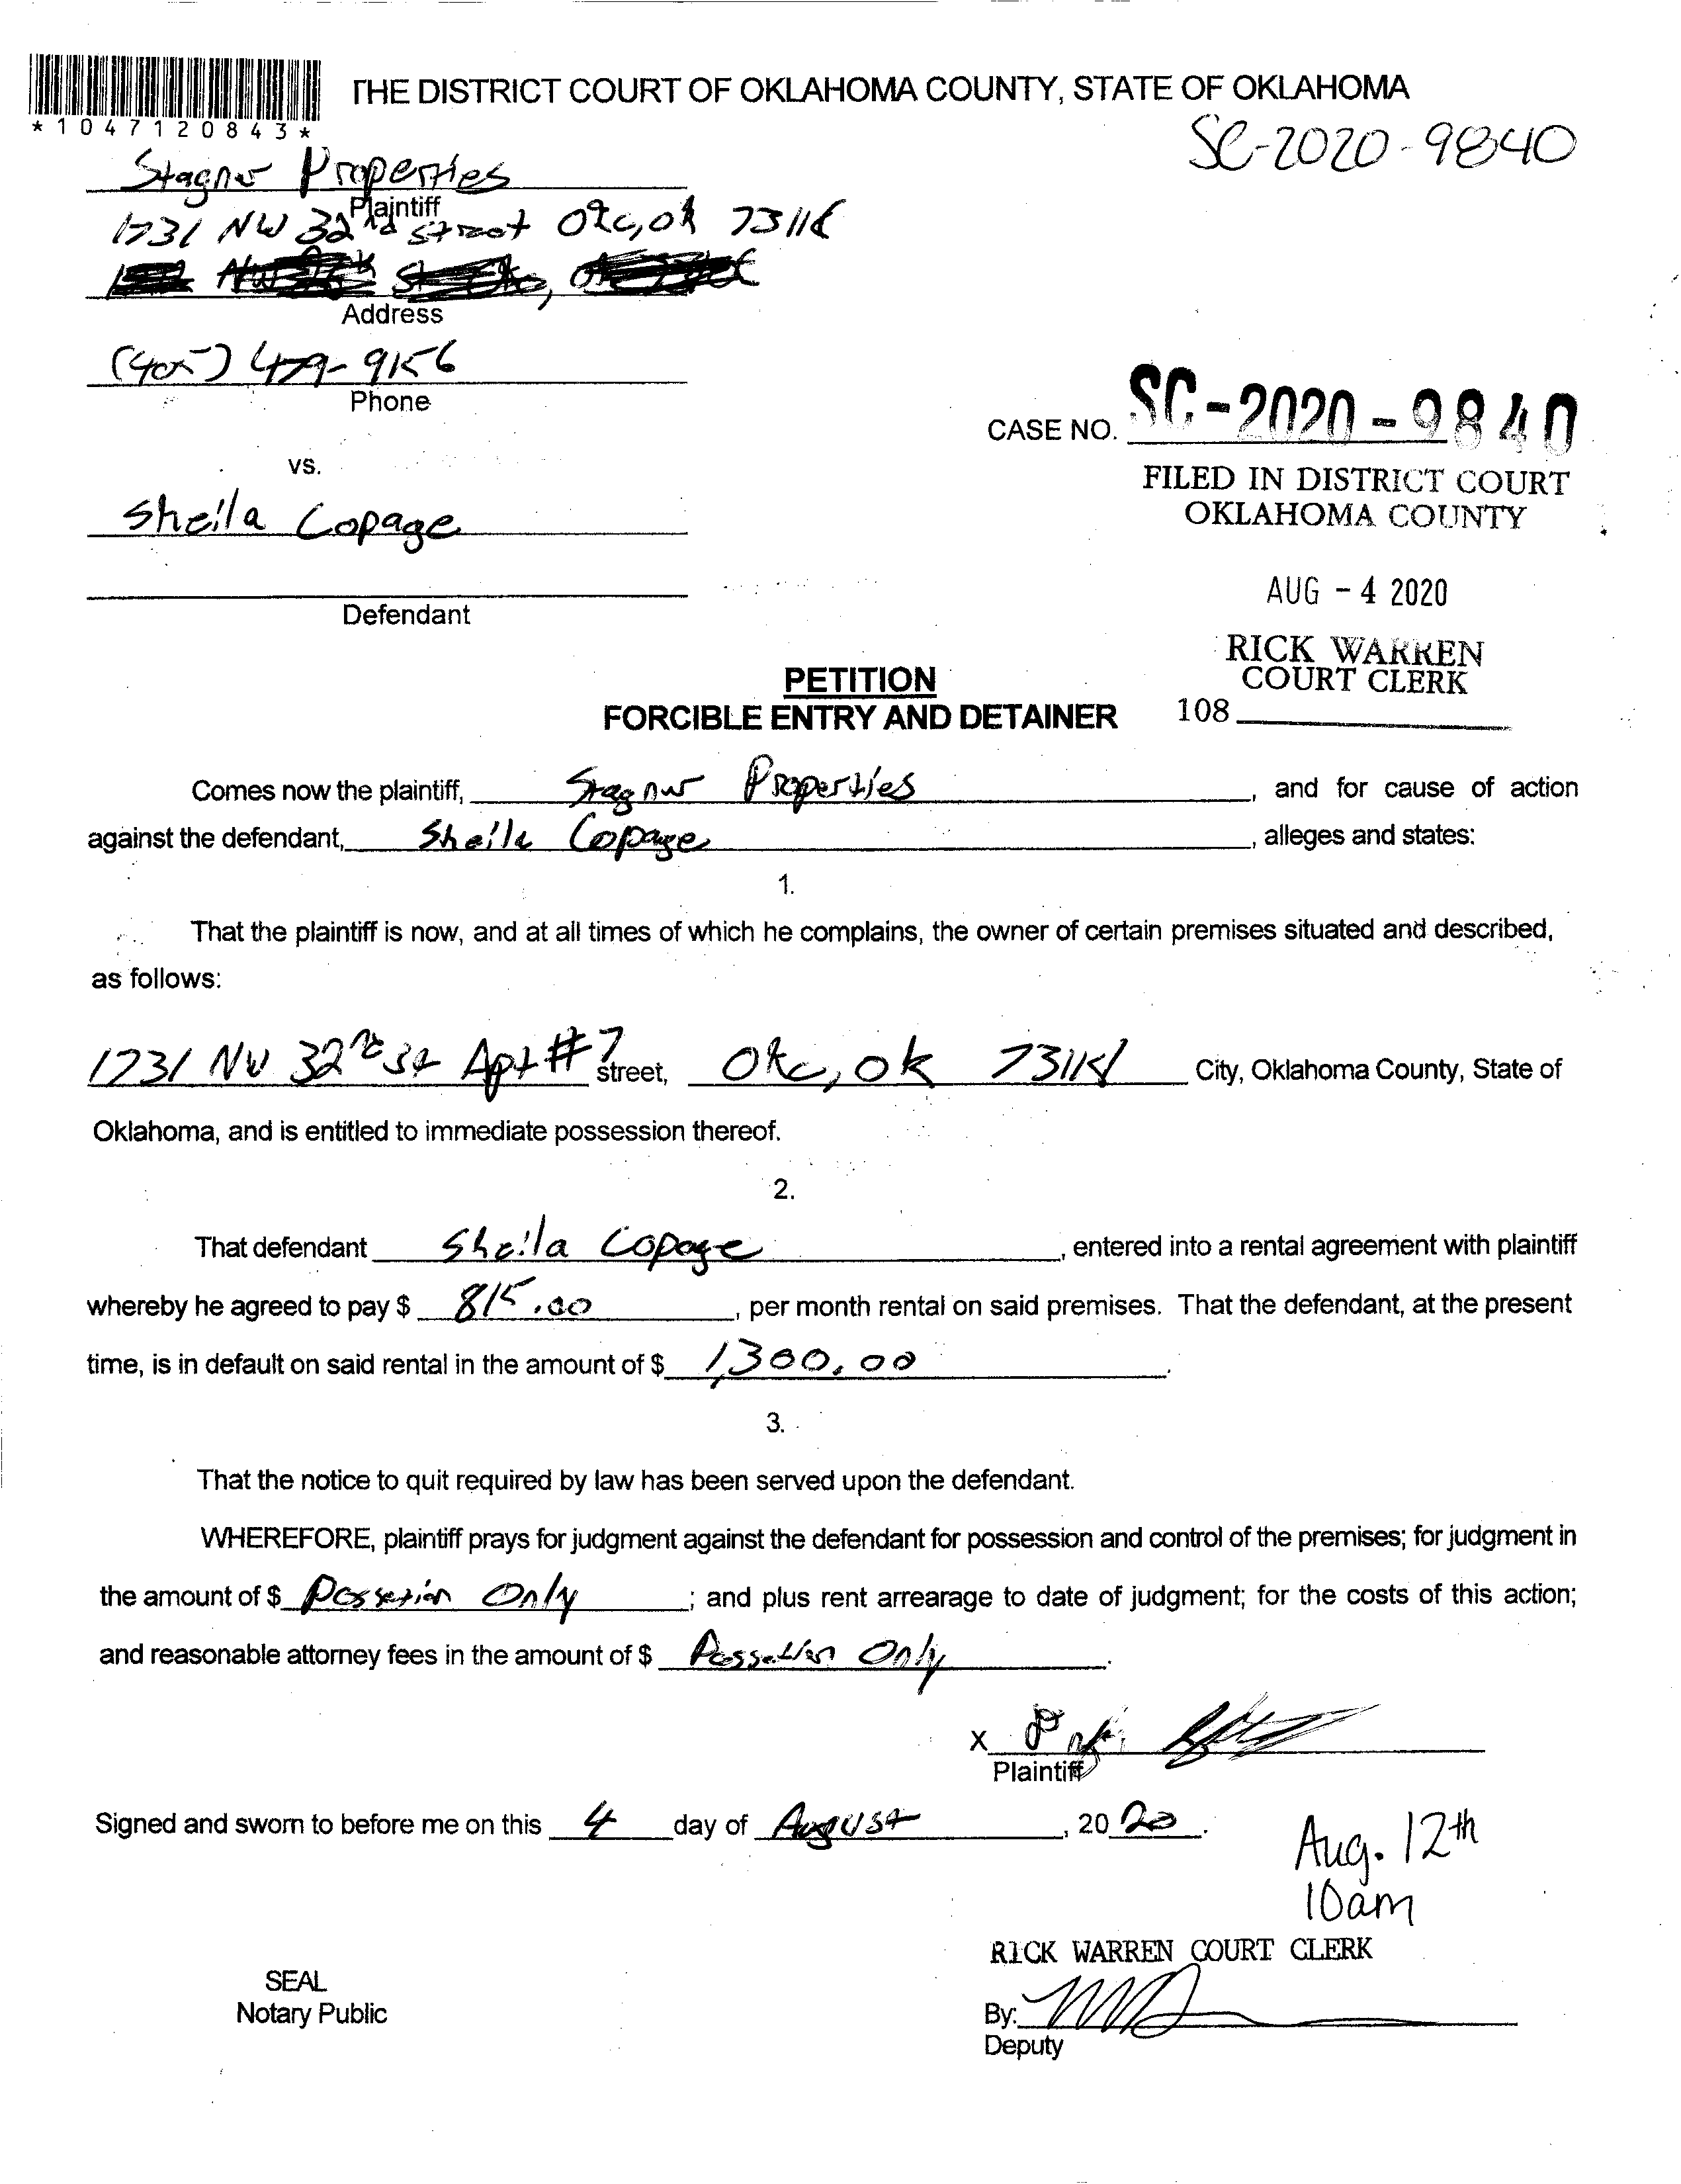 THE DISTRICT COURT OF OKLAHOMA COUNTY, STATE OF OKLAHOMA
*1047120843*
SC-2020-9840
Stagner Properties
Plaintiff
1731 NW 32nd Street Okc, ok 73118
Address
(405) 479-9156
Phone
CASE NO. SC-2020-9840
vs.
FILED IN DISTRICT COURT
OKLAHOMA COUNTY
Sheila Copage
AUG - 4 2020
Defendant
RICK WARREN
COURT CLERK
PETITION
108
FORCIBLE ENTRY AND DETAINER
Comes now the plaintiff, Stagner Properties, and for cause of action
against the defendant, Sheila Copage, alleges and states:
1.
That the plaintiff is now, and at all times of which he complains, the owner of certain premises situated and described,
as follows:
1731 NW 32nd St Apt #7 street, Okc, ok 73118 City, Oklahoma County, State of
Oklahoma, and is entitled to immediate possession thereof.
2.
That defendant Sheila Copage, entered into a rental agreement with plaintiff
whereby he agreed to pay $ 815.00, per month rental on said premises. That the defendant, at the present
time, is in default on said rental in the amount of $ 1,300.00.
3.
That the notice to quit required by law has been served upon the defendant.
WHEREFORE, plaintiff prays for judgment against the defendant for possession and control of the premises; for judgment in
the amount of $ Possetion Only; and plus rent arrearage to date of judgment; for the costs of this action;
and reasonable attorney fees in the amount of $ Possetion Only.
X
Plaintiff
Signed and sworn to before me on this 4 day of August, 2020.
Aug. 12th
10am
RICK WARREN COURT CLERK
SEAL
Notary Public
By:
Deputy